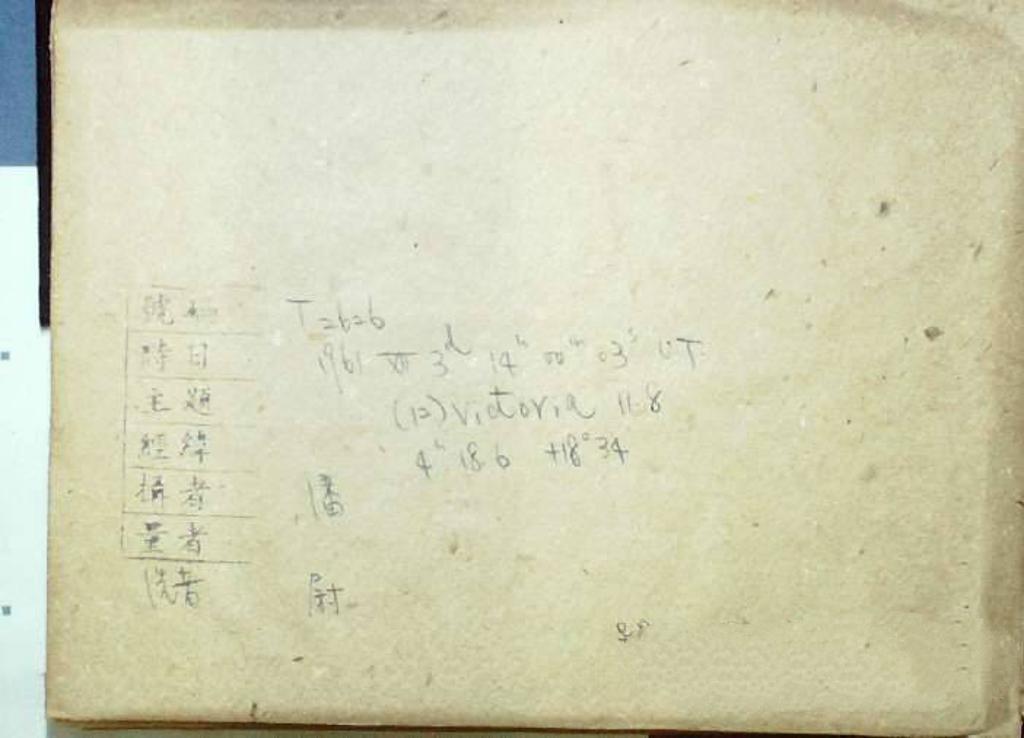 號如 T=b=b
時日 1961 XII 3ᵈ 14ʰ 00ᵐ 03ˢ UT
主題 (12) Victoria 11.8
經緯 4ʰ 18.6 +18°34
攝者 潘
量者
洗者 尉